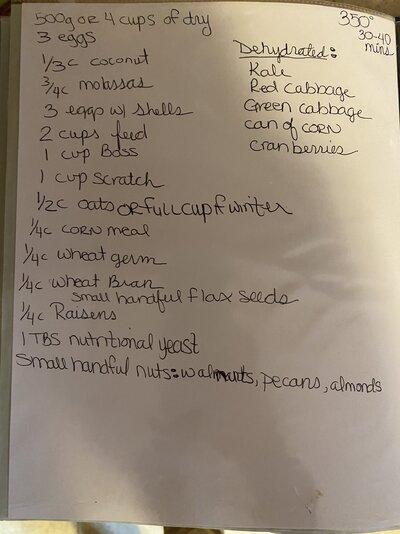 500g OR 4 cups of dry
3 eggs
1/3c coconut
3/4c molassas
3 eggs w/ shells
2 cups feed
1 cup Boss
1 cup scratch
1/2c oats OR full cup if winter
1/4c corn meal
1/4c wheat germ
1/4c wheat Bran
small handful flax seeds
1/4c Raisens
1 TBS nutritional yeast
Small handful nuts: walnuts, pecans, almonds
350°
30-40
mins
Dehydrated:
Kale
Red cabbage
Green cabbage
can of corn
cranberries